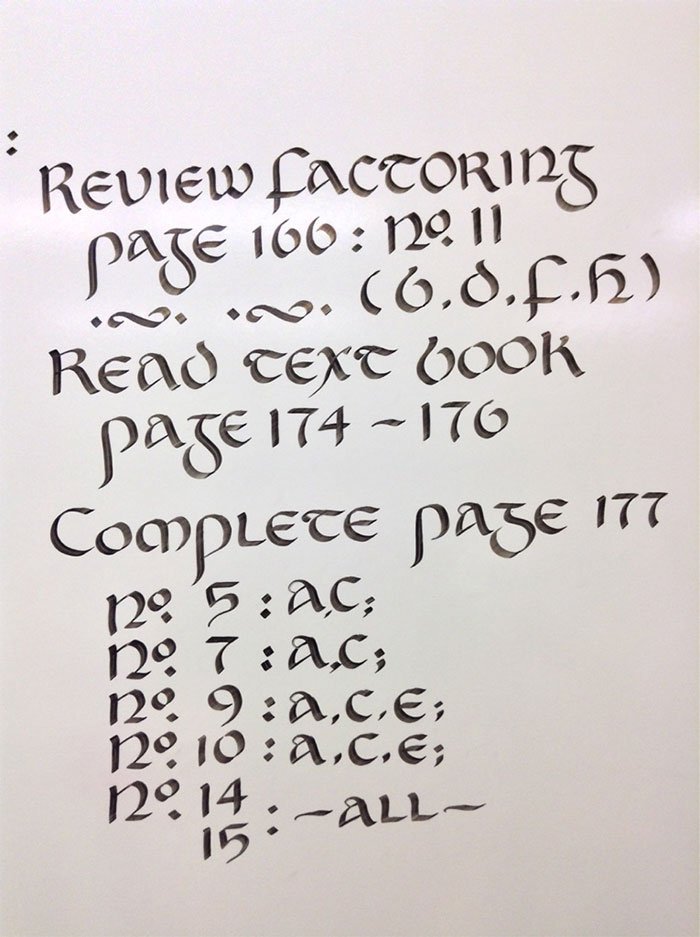 :
Review Factoring
page 166 : No. 11
.~. .~. (b.d.f.h)
Read text book
page 174 ~ 176
Complete page 177
No. 5 : a,c;
No. 7 : a,c;
No. 9 : a,c,e;
No. 10 : a,c,e;
No. 14
15 : ~all~